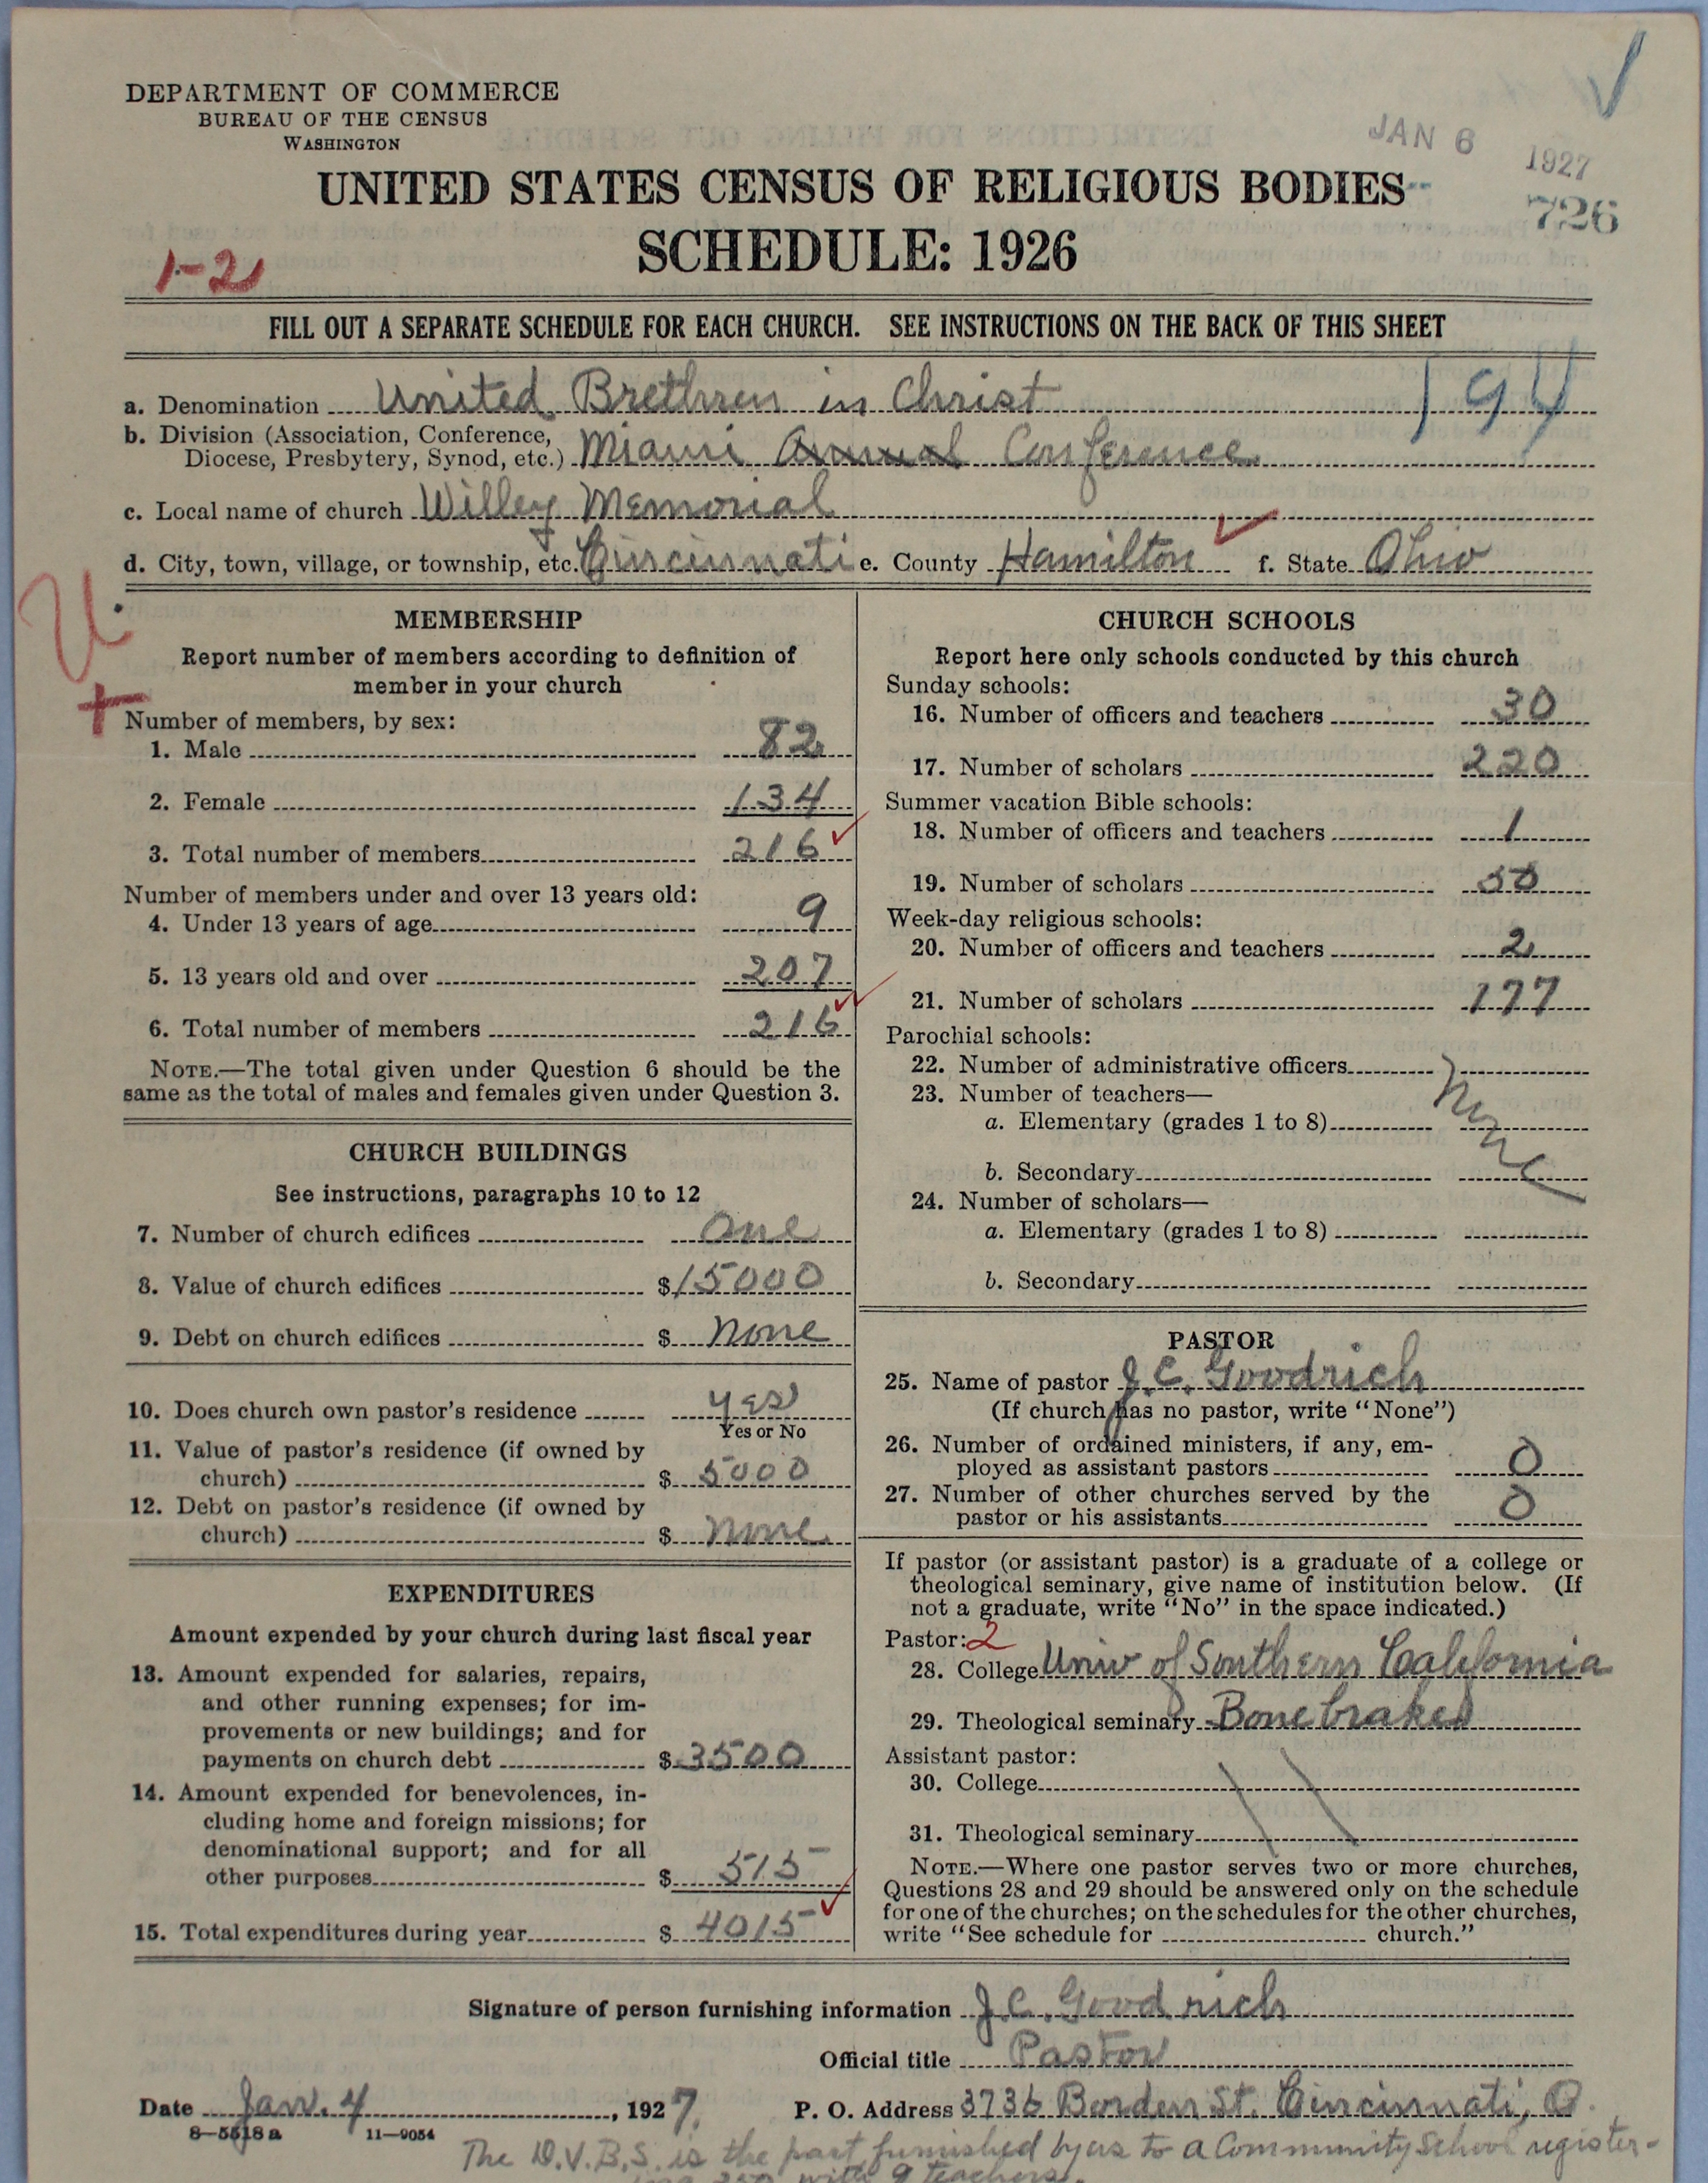 DEPARTMENT OF COMMERCE
BUREAU OF THE CENSUS
WASHINGTON
JAN 6 1927
726
UNITED STATES CENSUS OF RELIGIOUS BODIES
SCHEDULE: 1926
1-2
FILL OUT A SEPARATE SCHEDULE FOR EACH CHURCH. SEE INSTRUCTIONS ON THE BACK OF THIS SHEET
194
a. Denomination United Brethren in Christ
b. Division (Association, Conference,
Diocese, Presbytery, Synod, etc.) Miami Annual Conference
c. Local name of church Willey Memorial
d. City, town, village, or township, etc. Cincinnati e. County Hamilton f. State Ohio
U
+
MEMBERSHIP
Report number of members according to definition of
member in your church
Number of members, by sex:
1. Male 82
2. Female 134
3. Total number of members 216
Number of members under and over 13 years old:
4. Under 13 years of age 9
5. 13 years old and over 207
6. Total number of members 216
NOTE.—The total given under Question 6 should be the
same as the total of males and females given under Question 3.
CHURCH BUILDINGS
See instructions, paragraphs 10 to 12
7. Number of church edifices One
8. Value of church edifices $15000
9. Debt on church edifices $ None
10. Does church own pastor's residence yes
Yes or No
11. Value of pastor's residence (if owned by
church) $ 5000
12. Debt on pastor's residence (if owned by
church) $ None
EXPENDITURES
Amount expended by your church during last fiscal year
13. Amount expended for salaries, repairs,
and other running expenses; for im-
provements or new buildings; and for
payments on church debt $ 3500
14. Amount expended for benevolences, in-
cluding home and foreign missions; for
denominational support; and for all
other purposes $ 515
15. Total expenditures during year $ 4015
CHURCH SCHOOLS
Report here only schools conducted by this church
Sunday schools:
16. Number of officers and teachers 30
17. Number of scholars 220
Summer vacation Bible schools:
18. Number of officers and teachers 1
19. Number of scholars 50
Week-day religious schools:
20. Number of officers and teachers 2
21. Number of scholars 177
Parochial schools:
22. Number of administrative officers
23. Number of teachers—
a. Elementary (grades 1 to 8)
None
b. Secondary
24. Number of scholars—
a. Elementary (grades 1 to 8)
b. Secondary
PASTOR
25. Name of pastor J. C. Goodrich
(If church has no pastor, write "None")
26. Number of ordained ministers, if any, em-
ployed as assistant pastors 0
27. Number of other churches served by the
pastor or his assistants 0
If pastor (or assistant pastor) is a graduate of a college or
theological seminary, give name of institution below. (If
not a graduate, write "No" in the space indicated.)
Pastor: 2
28. College Univ of Southern California
29. Theological seminary Bonebrake
Assistant pastor:
30. College
31. Theological seminary
NOTE.—Where one pastor serves two or more churches,
Questions 28 and 29 should be answered only on the schedule
for one of the churches; on the schedules for the other churches,
write "See schedule for church."
Signature of person furnishing information J. C. Goodrich
Official title Pastor
Date Jan. 4, 1927. P. O. Address 3736 Borden St. Cincinnati, O.
8—5518 a 11—9054
The D.V.B.S. is the part furnished by us to a Community School register-
ing 250 with 9 teachers.